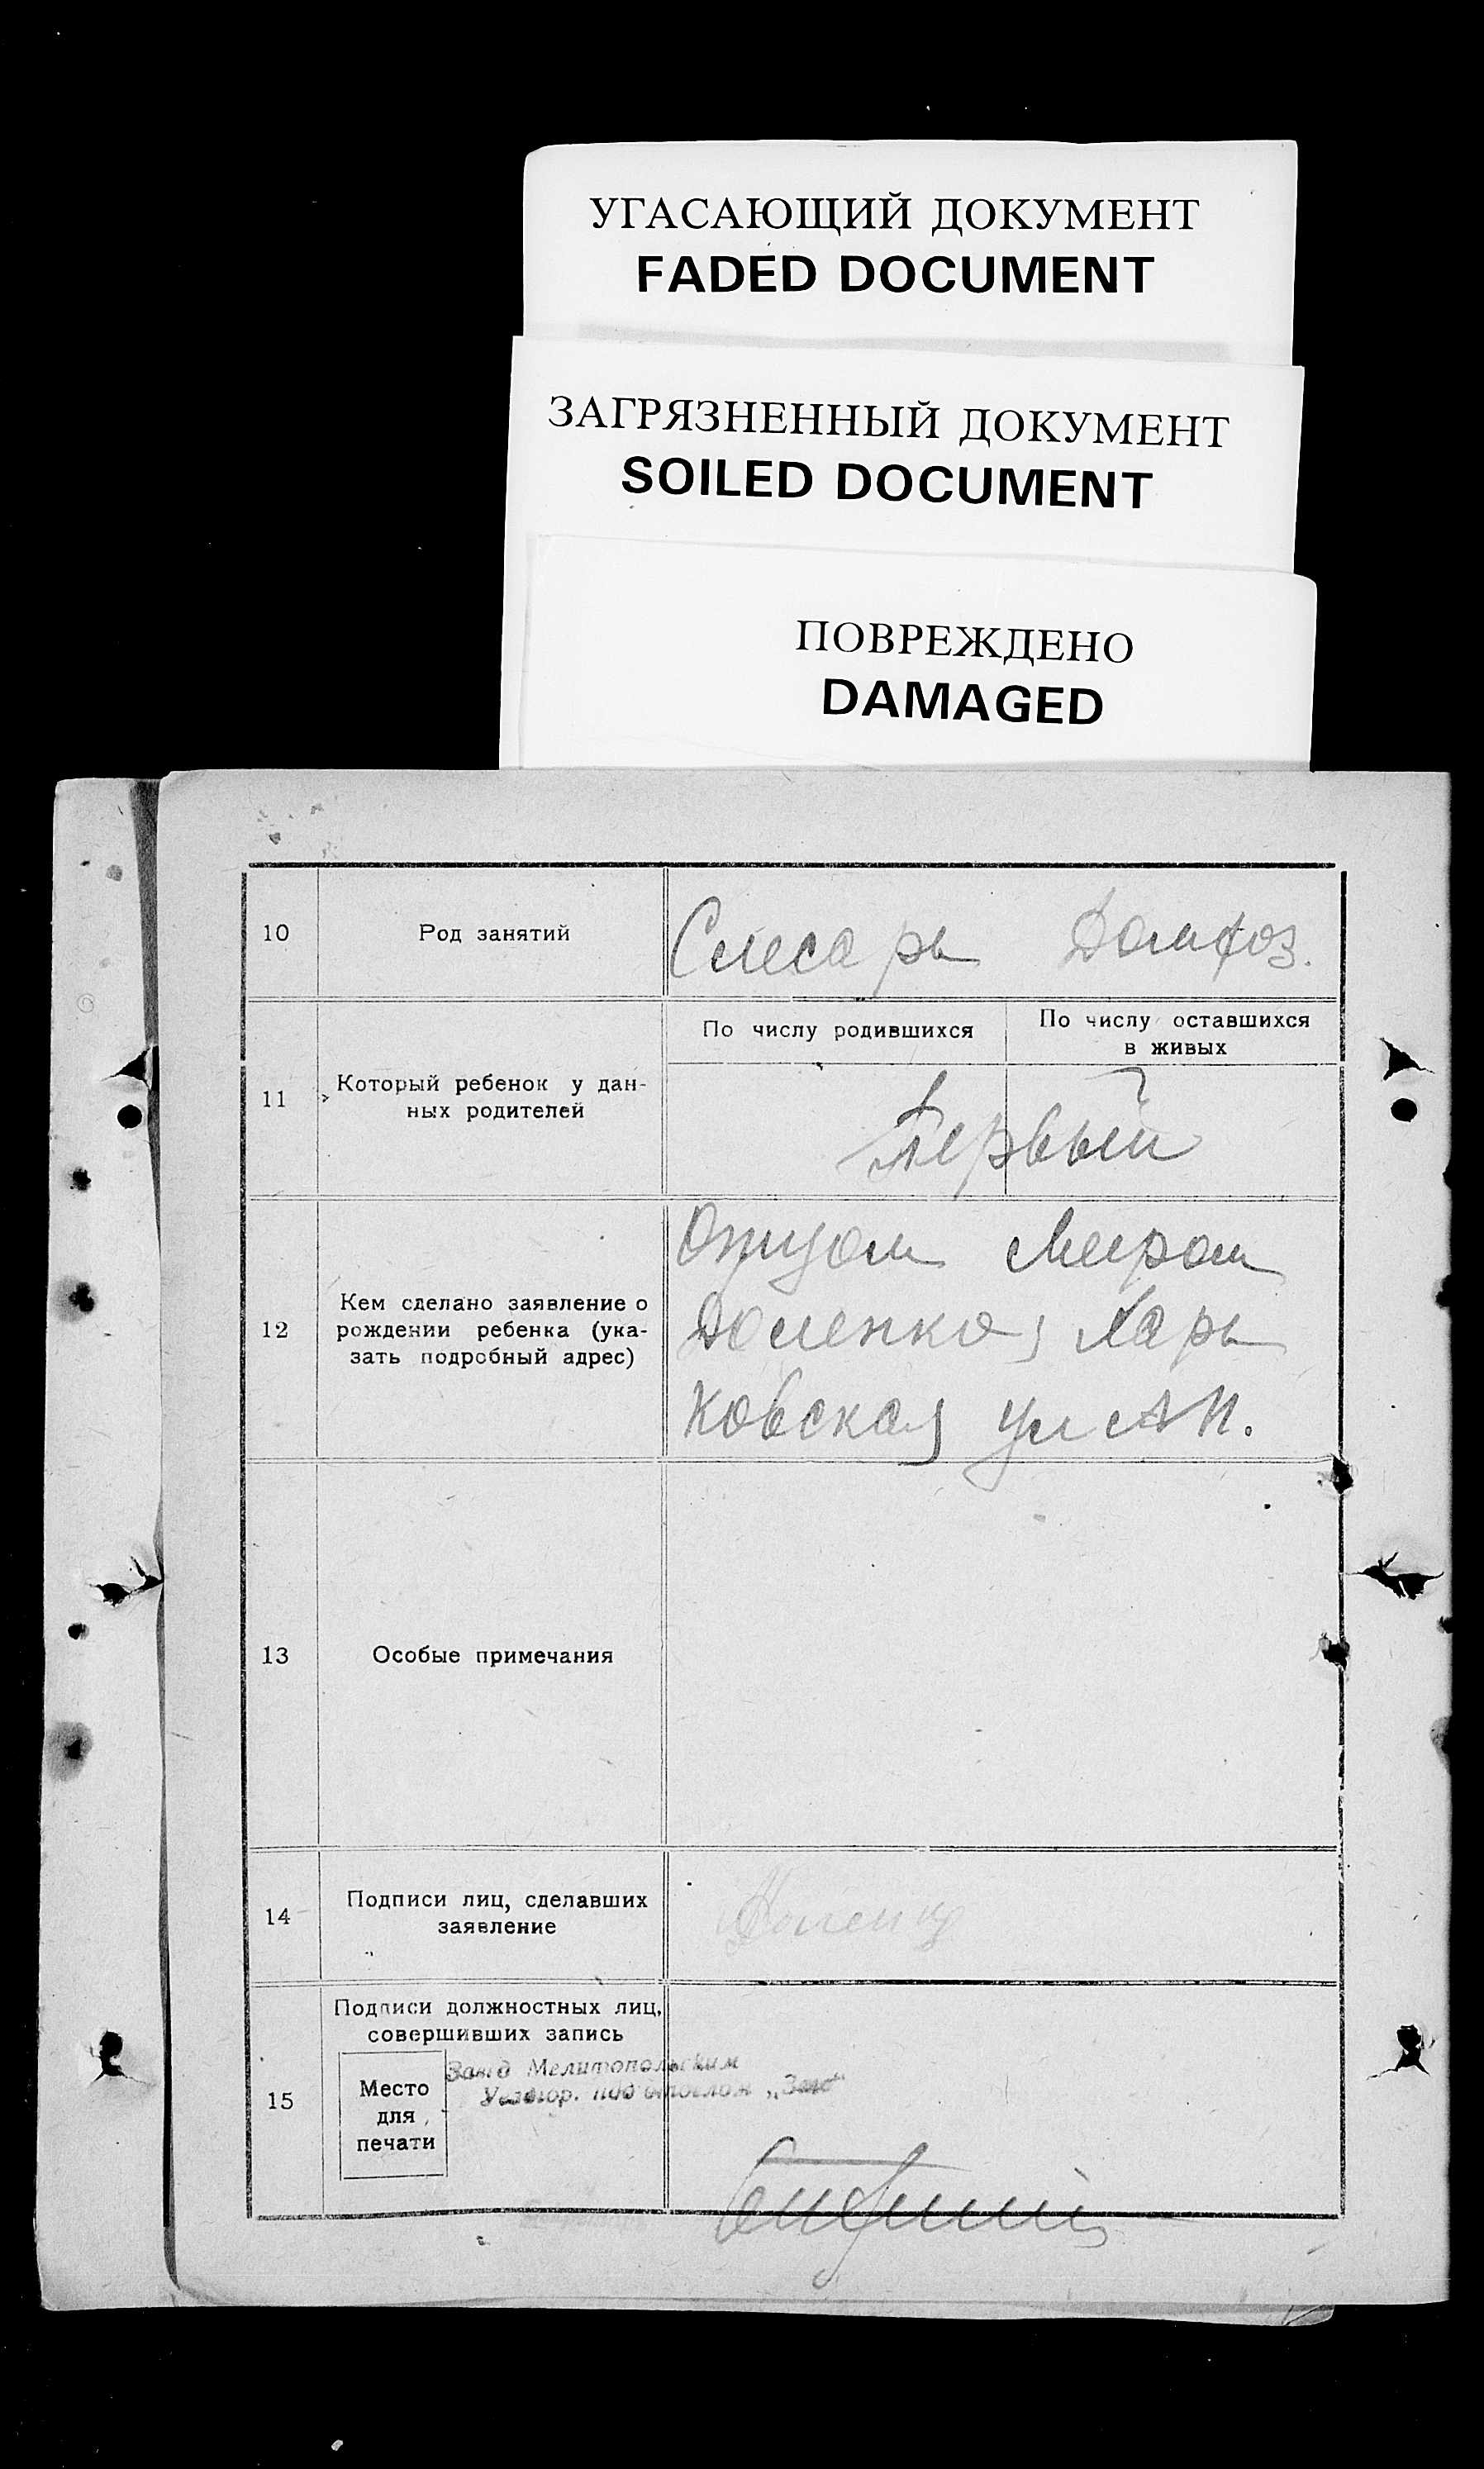 УГАСАЮЩИЙ ДОКУМЕНТ
FADED DOCUMENT
ЗАГРЯЗНЕННЫЙ ДОКУМЕНТ
SOILED DOCUMENT
ПОВРЕЖДЕНО
DAMAGED
10 Род занятий Слесарь Домхоз.
11 Который ребенок у дан-
ных родителей
По числу родившихся
По числу оставшихся
в живых
Первый
12 Кем сделано заявление о
рождении ребенка (ука-
зать подробный адрес)
Отцом Меером
Доленко, Харь
ковская ул
13 Особые примечания
14 Подписи лиц, сделавших
заявление
15 Подписи должностных лиц,
совершивших запись
Место
для
печати
Мелитопольским